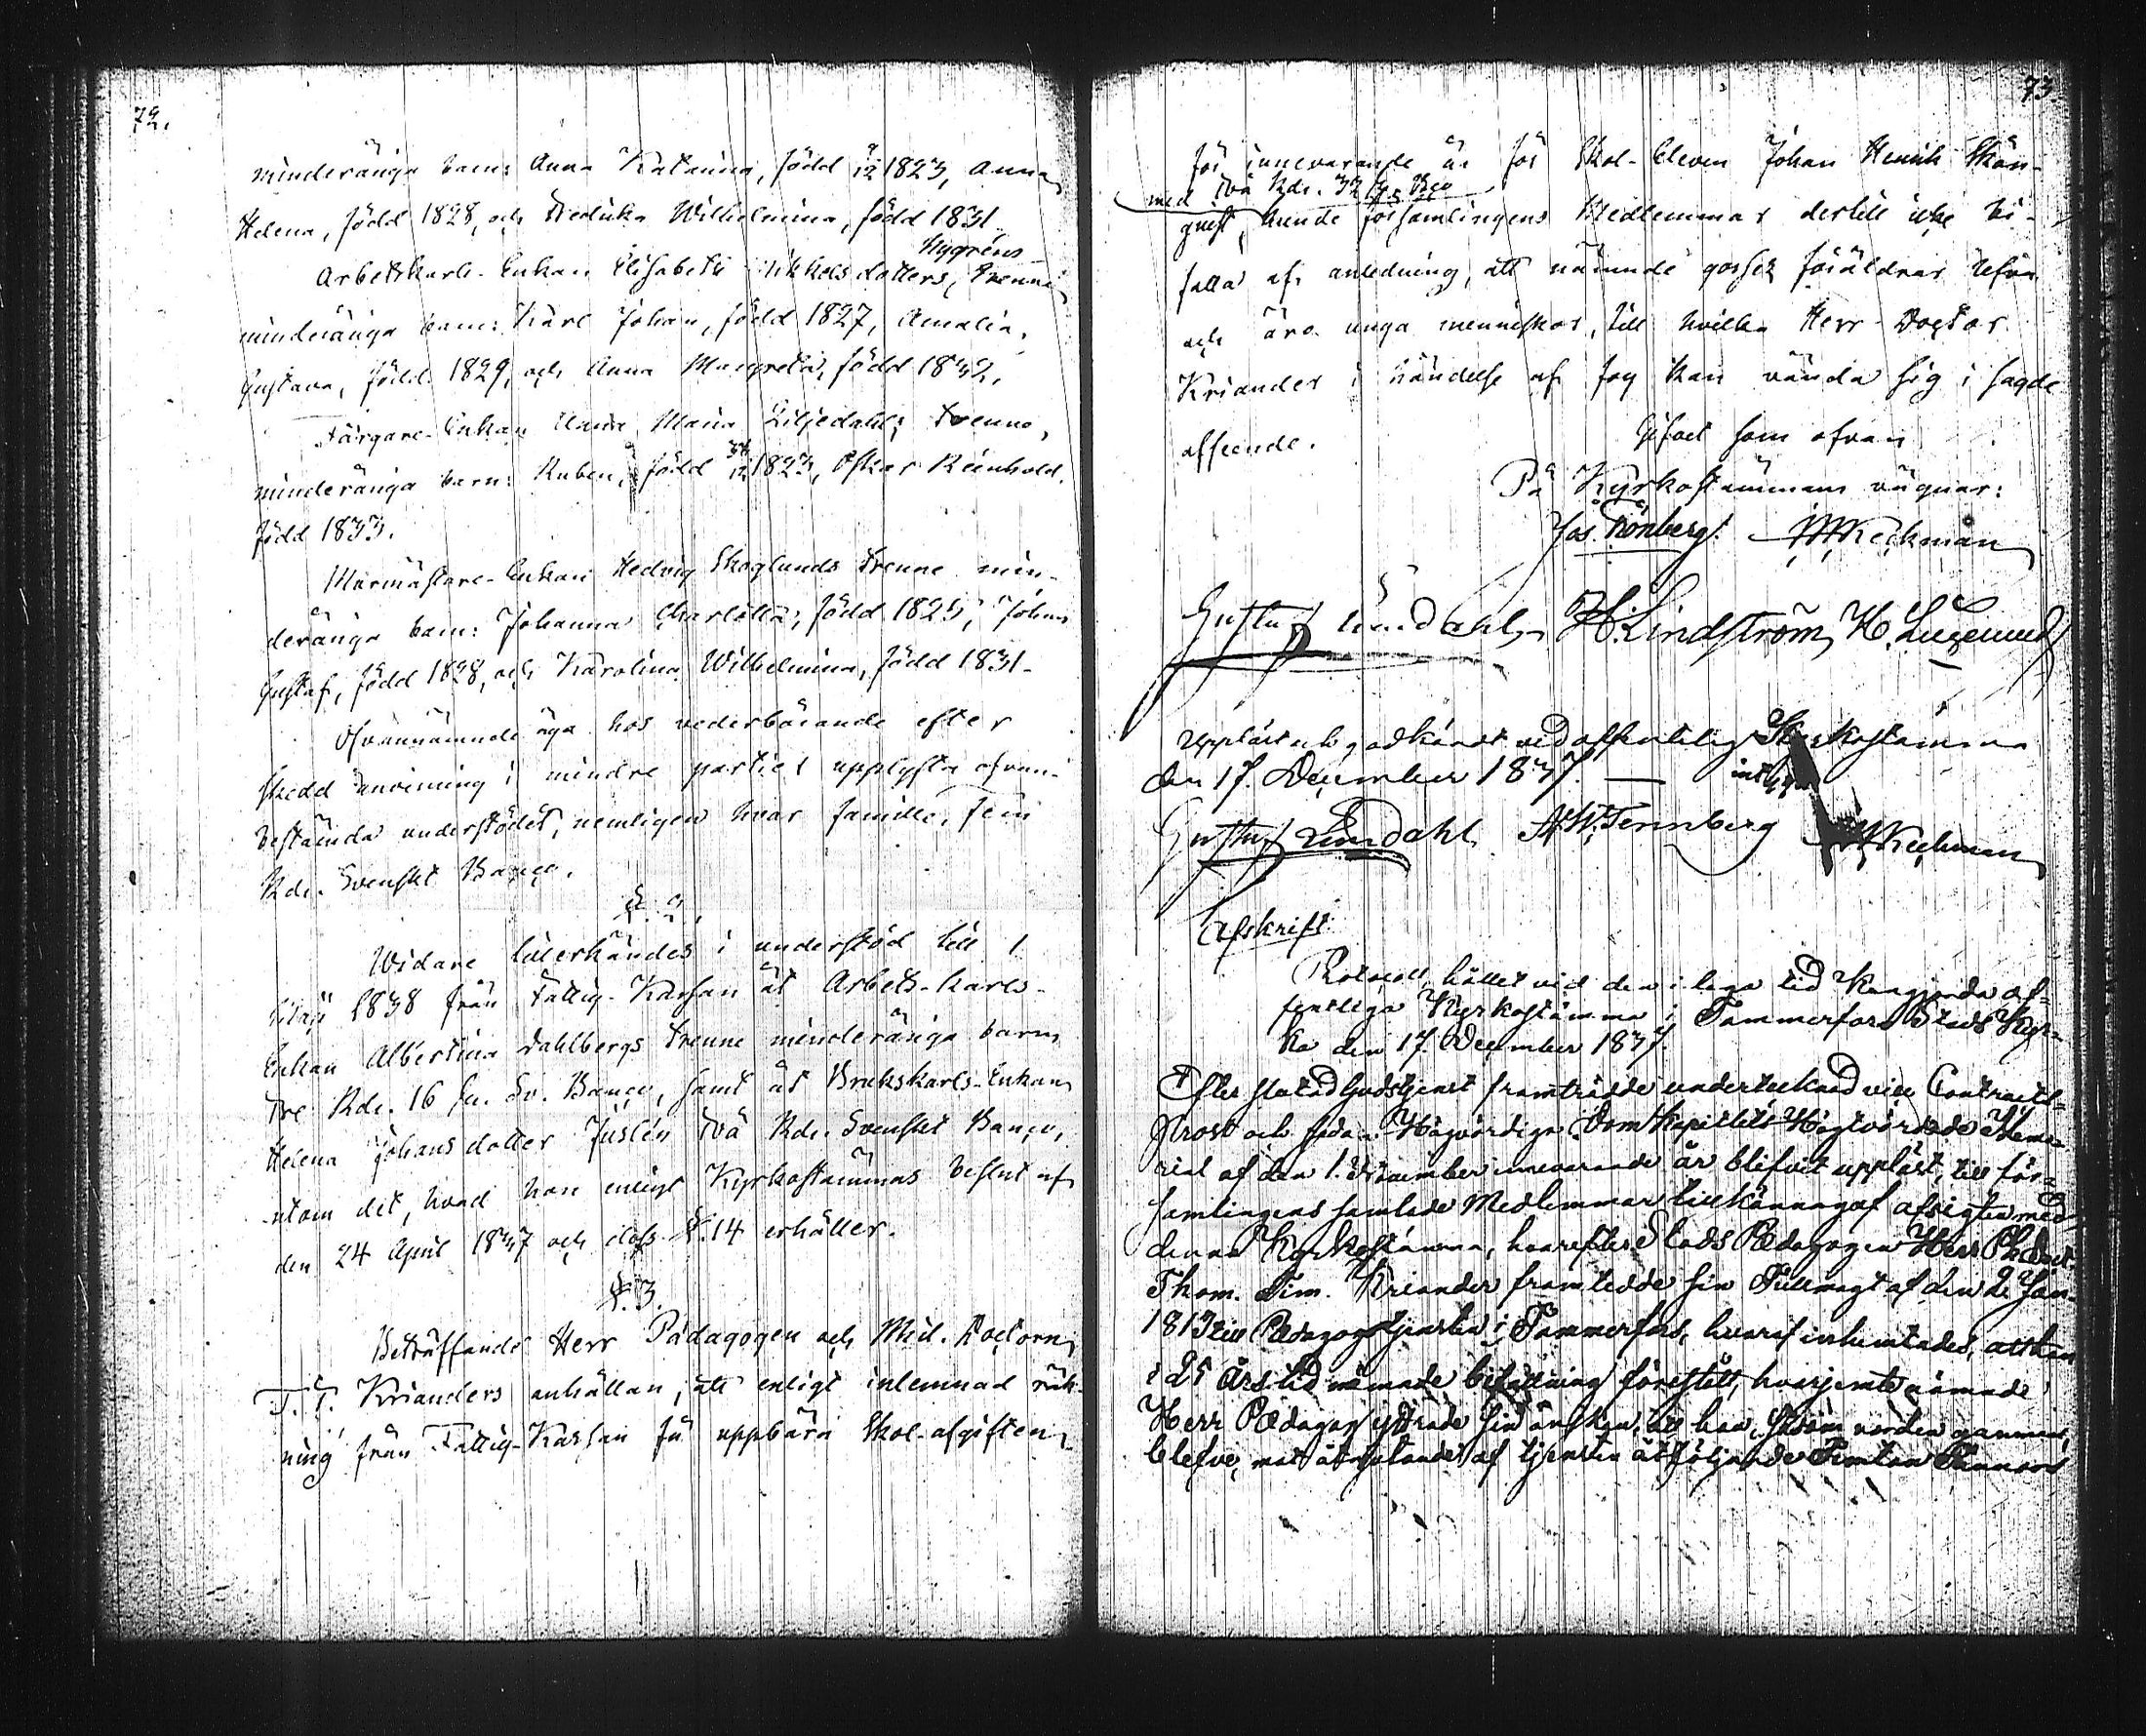 72.
minderåriga barn: Anna Katarina, född 12 1823, Anna
Helena, född 1828, och Fredrika Wilhelmina, född 1831.
Nygréns
Arbetskarls-Enkan Elisabeth Mikkelsdotters, trenne
minderåriga barn: Karl Johan, född 1827, Amalia
Gustava, född 1829, och Anna Margreta, född 1832.
Färgare-Enkan Anna Maria Liljedahls trenne
minderåriga barn: Ruben, född 1823, Oskar Reinhold,
född 1833.
Murmästare-Enkan Hedvig Skoglunds trenne min-
deråriga barn: Johanna Charlotta, född 1825, Johan
Gustaf, född 1828, och Karolina Wilhelmina, född 1831.
Ofvannämnde äga hos vederbörande efter
skedd anvisning i mindre partier upplyfta ofvan-
bestämda understödet, nemligen hvar famille, fem
Rdr. Svenskt Banco.
§. 2.
Widare tillerkändes i understöd till 1
Maji 1838 från Fattig-Kassan åt Arbets-karls-
Enkan Albertina Dahlbergs trenne minderåriga barn,
Tre Rdr. 16 sk. Sv. Banco, samt åt Brukskarls-Enkan
Helena Johansdotter Juslén två Rdr. Svenskt Banco,
utom det, hvad hon enligt Kyrkostämmas beslut af
den 24 April 1837 och dess §. 14 erhåller.
§. 3.
Beträffande Herr Pädagogen och Med. Doctorn
T. T. Krianders anhållan, att enligt inlemnad räk-
ning från Fattig-Kassan få uppbära Skol-afgiften
73.
för innevarande år för Skol-Eleven Johan Henrik Skön-
med två Rdr. 32 sk. Bco
quist, kunde församlingens Medlemmar dertill icke bi-
falla af anledning, att nämnde gosses föräldrar lefva
och äro unga menniskor, till hvilka Herr Doctor
Kriander i händelse af Jag kan vända sig i sagde
afseende.
Gifvet som ofvan
På Kyrkostämmans vägnar:
Jos. Grönberg. Keckman
Gustaf Lindahl H. Lindström H. Lugelund
Uppläst och godkändt vid offentelig Kyrkostämma
den 17. December 1837. — intyga
Gustaf Lindahl A. W. Tennberg Keckman
Afskrift.
Protocoll, hållet vid den i laga tid kungjorda of-
fentliga Kyrkostämma i Tammerfors Stads Kyr-
ka den 17. December 1837.
Efter slutad Gudstjenst framträdde undertecknad vice Contracts-
Prost och sedan Högvördiga DomKapitlets Högtvördade Memo-
rial af den 1. December innevarande år blifvit uppläst, till för-
samlingens samlade Medlemmar tillkännagaf afsigten med
denna Kyrkostämma, hvarefter Stads Pædagogen Herr Ph. Doct.
Thom. Tim. Kriander framtedde sin Fullmagt af den 22 Jan.
1813 till Pædagogtjensten i Tammerfors, hvaraf inhemtades, att han
i 25 Års tid nämnde befattning förestått, hvarjemte nämnde
Herr Pædagog yttrade sin önskan, att han, såsom vorden gammal,
blefve, mot afträdandet af tjensten åtföljande Femton Tunnors